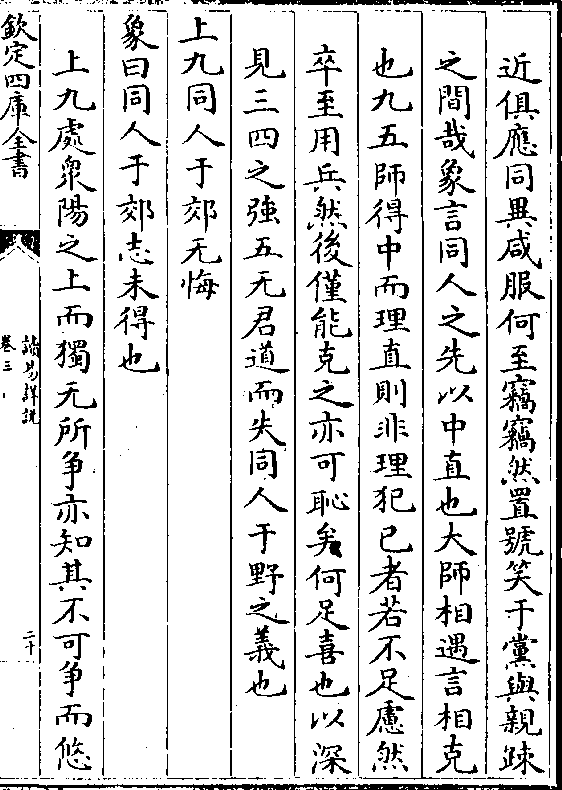 近俱應同異咸服何至竊竊然置號笑于黨與親疎
之間哉象言同人之先以中直也大師相遇言相克
也九五師得中而理直則非理犯已者若不足慮然
卒至用兵然後僅能克之亦可恥矣何足喜也以深
見三四之強五无君道而失同人于野之義也
上九同人于郊无悔
象曰同人于郊志未得也
上九處衆陽之上而獨无所争亦知其不可争而悠
欽定四庫全書
讀易詳說
卷三
二十